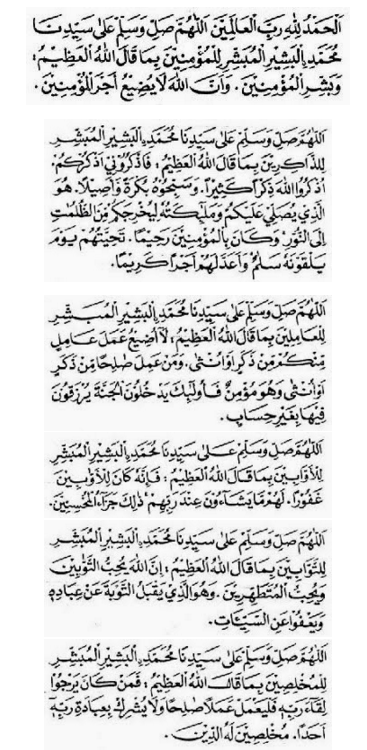 اَلْحَمْدُ لِلّٰهِ رَبِّ الْعَالَمِيْنَ اَللّٰهُمَّ صَلِّ وَسَلِّمْ عَلٰى سَيِّدِنَا
مُحَمَّدٍ الْبَشِيْرِ الْمُبَشِّرِ لِلْمُؤْمِنِيْنَ بِمَا قَالَ اللّٰهُ الْعَظِيْمُ:
وَبَشِّرِ الْمُؤْمِنِيْنَ. وَاَنَّ اللّٰهَ لَا يُضِيْعُ اَجْرَ الْمُؤْمِنِيْنَ.
اَللّٰهُمَّ صَلِّ وَسَلِّمْ عَلٰى سَيِّدِنَا مُحَمَّدٍ الْبَشِيْرِ الْمُبَشِّرِ
لِلذَّاكِرِيْنَ بِمَا قَالَ اللّٰهُ الْعَظِيْمُ: فَاذْكُرُوْنِيْ اَذْكُرْكُمْ.
اُذْكُرُوا اللّٰهَ ذِكْرًا كَثِيْرًا. وَسَبِّحُوْهُ بُكْرَةً وَاَصِيْلًا. هُوَ
الَّذِيْ يُصَلِّيْ عَلَيْكُمْ وَمَلٰٓئِكَتُهُ لِيُخْرِجَكُمْ مِنَ الظُّلُمٰتِ
اِلَى النُّوْرِ وَكَانَ بِالْمُؤْمِنِيْنَ رَحِيْمًا. تَحِيَّتُهُمْ يَوْمَ
يَلْقَوْنَهُ سَلٰمٌ وَاَعَدَّ لَهُمْ اَجْرًا كَرِيْمًا.
اَللّٰهُمَّ صَلِّ وَسَلِّمْ عَلٰى سَيِّدِنَا مُحَمَّدٍ الْبَشِيْرِ الْمُبَشِّرِ
لِلْعَامِلِيْنَ بِمَا قَالَ اللّٰهُ الْعَظِيْمُ: لَا اُضِيْعُ عَمَلَ عَامِلٍ
مِنْكُمْ مِنْ ذَكَرٍ اَوْ اُنْثٰى. وَمَنْ عَمِلَ صٰلِحًا مِنْ ذَكَرٍ
اَوْ اُنْثٰى وَهُوَ مُؤْمِنٌ فَاُولٰٓئِكَ يَدْخُلُوْنَ الْجَنَّةَ يُرْزَقُوْنَ
فِيْهَا بِغَيْرِ حِسَابٍ.
اَللّٰهُمَّ صَلِّ وَسَلِّمْ عَلٰى سَيِّدِنَا مُحَمَّدٍ الْبَشِيْرِ الْمُبَشِّرِ
لِلْاَوَّابِيْنَ بِمَا قَالَ اللّٰهُ الْعَظِيْمُ: فَاِنَّهُ كَانَ لِلْاَوَّابِيْنَ
غَفُوْرًا. لَهُمْ مَا يَشَاءُوْنَ عِنْدَ رَبِّهِمْ ذٰلِكَ جَزَاءُ الْمُحْسِنِيْنَ.
اَللّٰهُمَّ صَلِّ وَسَلِّمْ عَلٰى سَيِّدِنَا مُحَمَّدٍ الْبَشِيْرِ الْمُبَشِّرِ
لِلتَّوَّابِيْنَ بِمَا قَالَ اللّٰهُ الْعَظِيْمُ: اِنَّ اللّٰهَ يُحِبُّ التَّوَّابِيْنَ
وَيُحِبُّ الْمُتَطَهِّرِيْنَ. وَهُوَ الَّذِيْ يَقْبَلُ التَّوْبَةَ عَنْ عِبَادِهِ
وَيَعْفُوْا عَنِ السَّيِّئَاتِ.
اَللّٰهُمَّ صَلِّ وَسَلِّمْ عَلٰى سَيِّدِنَا مُحَمَّدٍ الْبَشِيْرِ الْمُبَشِّرِ
لِلْمُخْلِصِيْنَ بِمَا قَالَ اللّٰهُ الْعَظِيْمُ: فَمَنْ كَانَ يَرْجُوْا
لِقَاءَ رَبِّهِ فَلْيَعْمَلْ عَمَلًا صَالِحًا وَلَا يُشْرِكْ بِعِبَادَةِ رَبِّهِ
اَحَدًا. مُخْلِصِيْنَ لَهُ الدِّيْنَ.